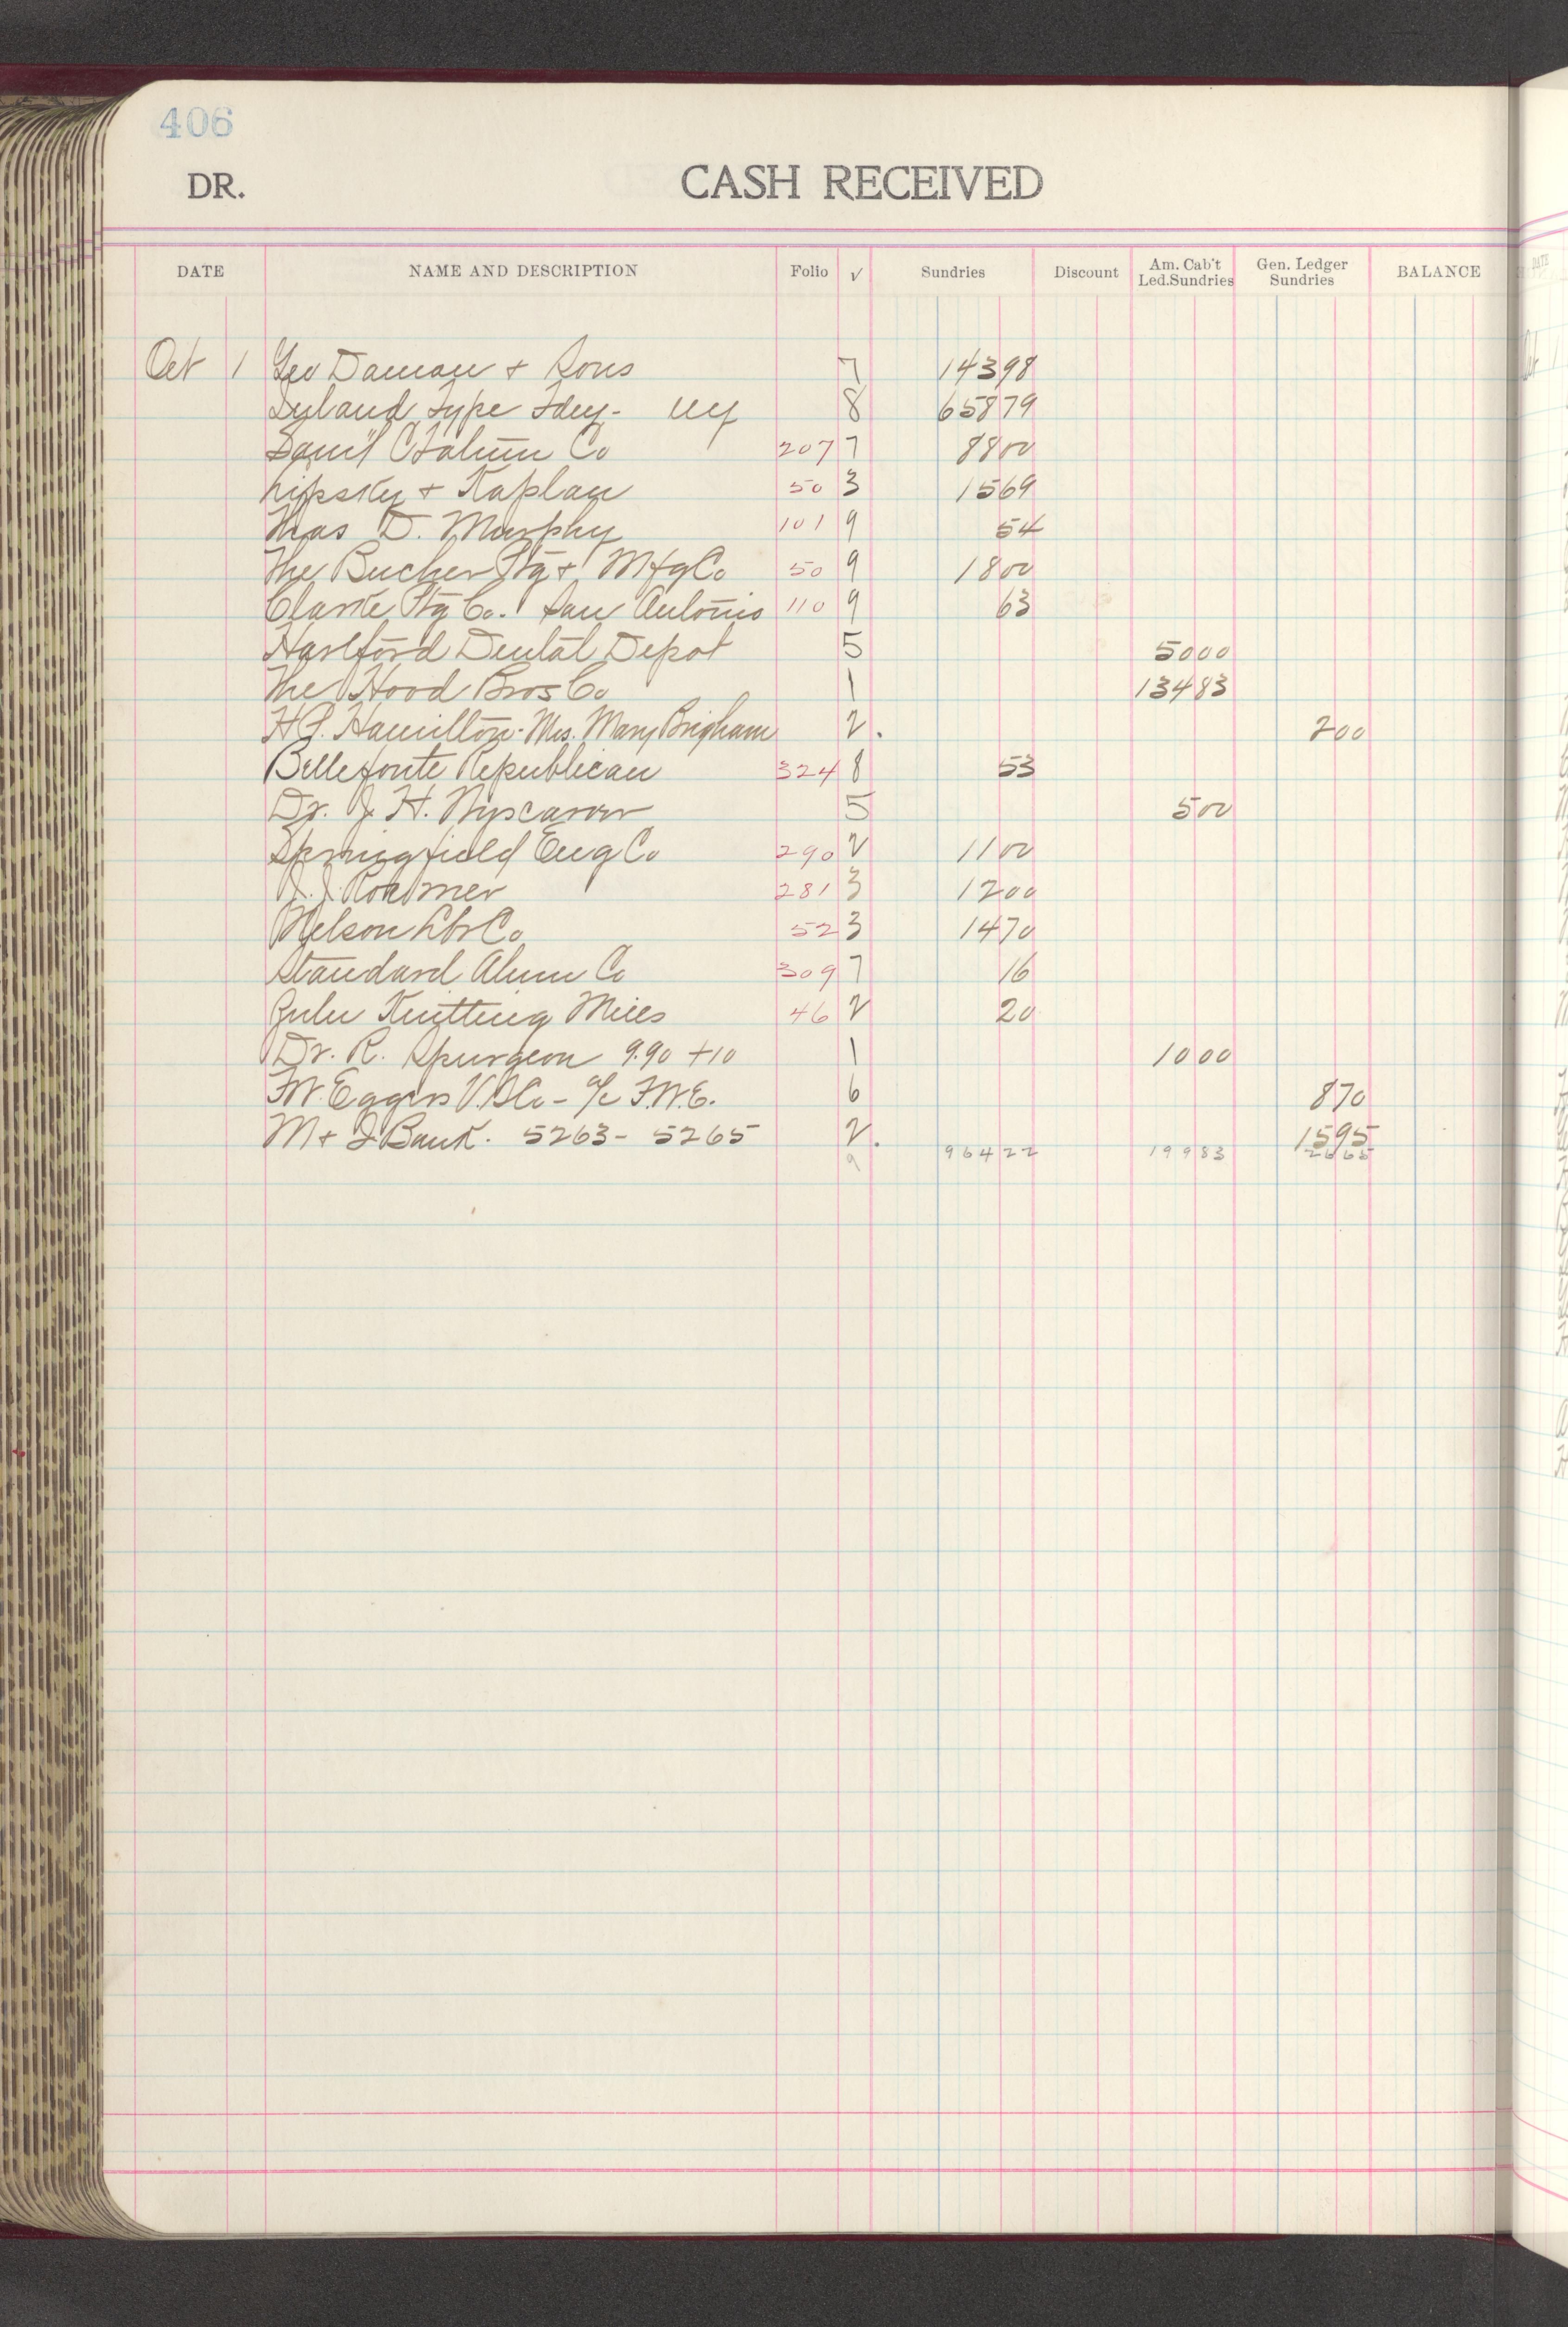 406
DR. CASH RECEIVED
DATE NAME AND DESCRIPTION Folio √ Sundries Discount Am. Cab't Led. Sundries Gen. Ledger Sundries BALANCE
Oct 1 Geo Damon & Sons 7 143 98
Type Fdry - 8 658 79
Sam'l C Tatum Co 207 7 88 00
Lipsky & Kaplan 50 3 15 69
Thos D. Murphy 101 9 54
The Bucher Ptg & Mfg Co 50 9 18 00
Clarke Ptg Co. San Antonio 110 9 63
Hartford Dental Depot 5 50 00
The Hood Bros Co 1 134 83
Hamilton - Mrs. Mary Brigham 2. 2 00
Bellefonte Republican 324 8 53
Dr. J. H. 5 5 00
Springfield Eng Co 290 2 11 00
281 3 12 00
Nelson Lbr Co 52 3 14 70
Standard Alum Co 309 7 16
Knitting Mills 46 2 20
Dr. R. Spurgeon 9.90 + 10 1 10 00
F.W. Eggers V.P. Co - a/c F.W.E. 6 8 70
M & I Bank. 5263 - 5265 2. 15 95
9 964 22 199 83 26 65